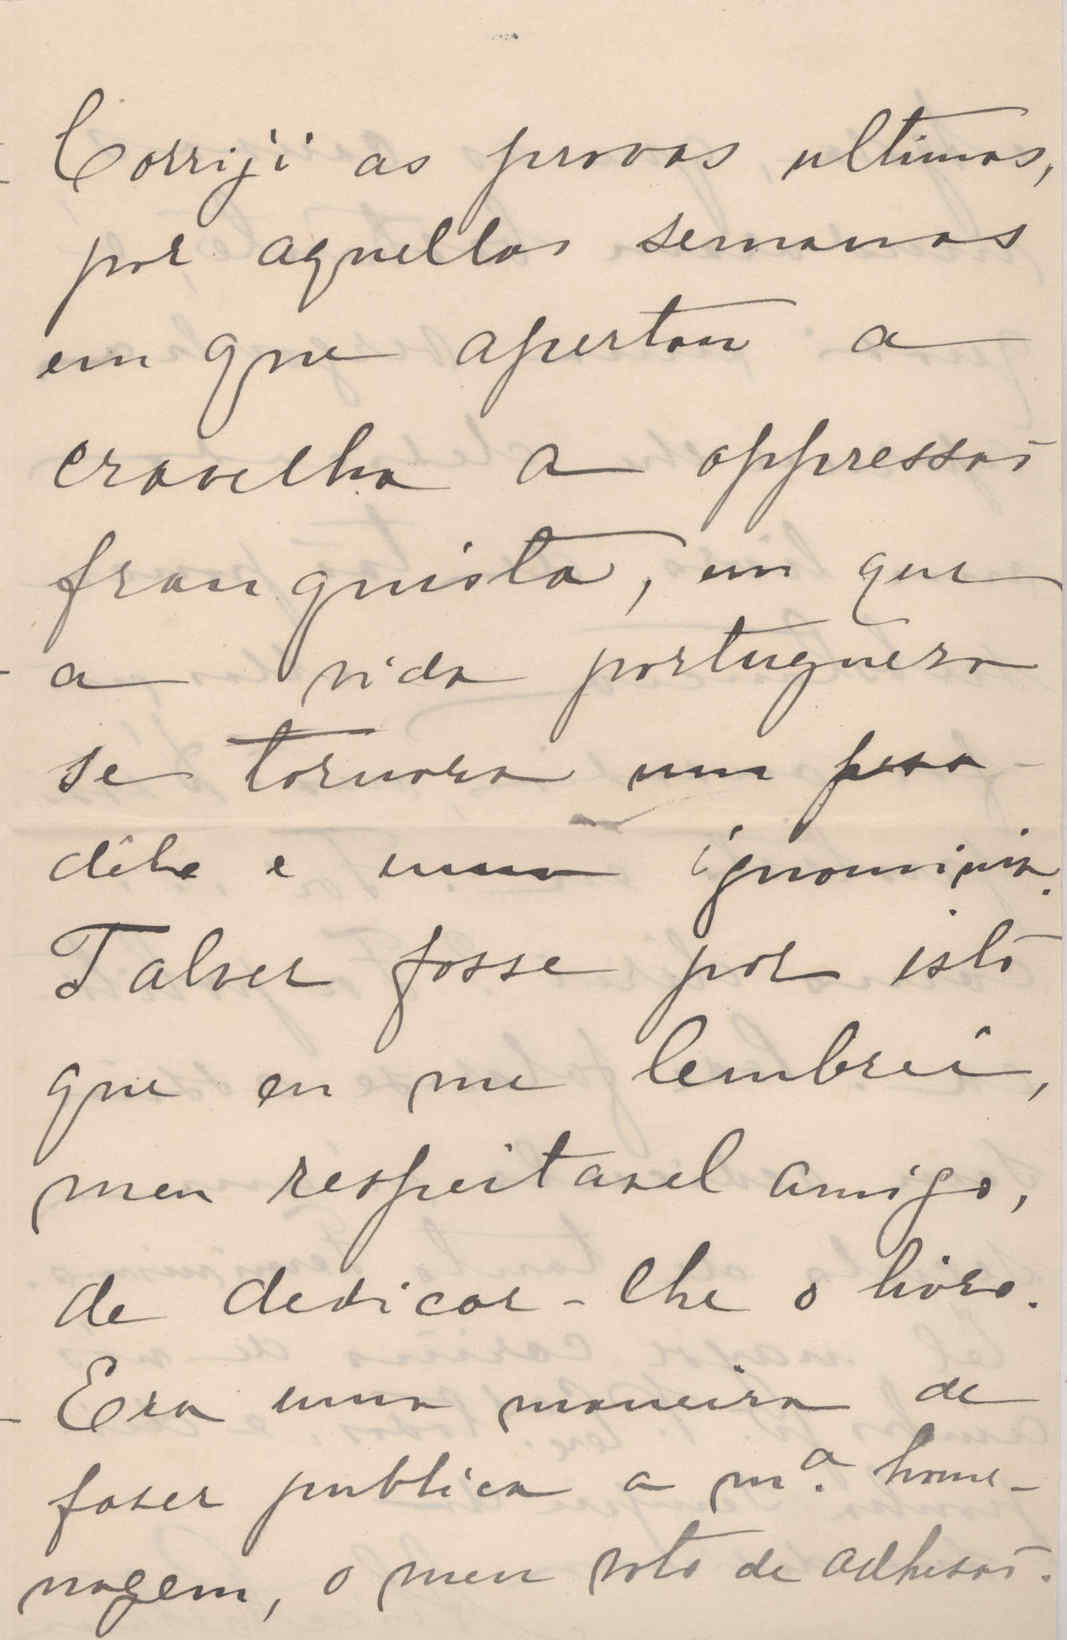 Corriji as provas ultimas,
por aquellas semanas
em que apertou a
cravelha a oppressão
franquista, em que
a vida portugueza
se tornara um pesa-
dêlo e uma ignominia.
Talvez fosse por isto
que eu me lembrei,
meu respeitavel amigo,
de dedicar-lhe o livro.
Era uma maneira de
fazer publica a m.ª home-
nagem, o meu voto de adhesão.